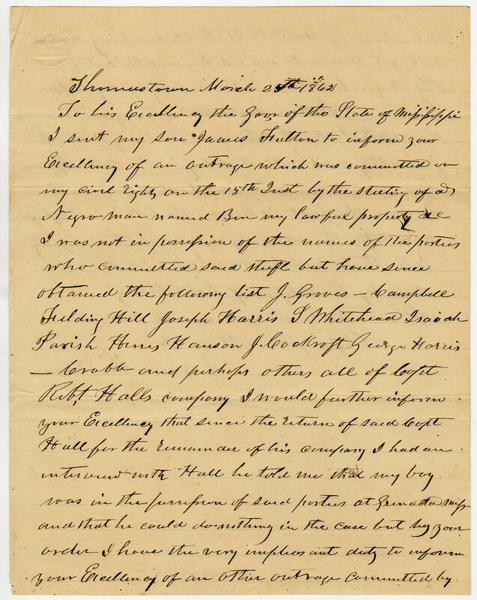 Thomastown March 25th 1862
To his Excellency the Govr of the State of Mississippi
I sent my son James Fulton to inform your
Excellency of an outrage which was committed on
my civil rights on the 15th Inst by the steeling of a
Negro man named Ben my lawful property &c
I was not in possession of the names of the parties
who committed said theft but have since
obtained the following list J. Groves — Campbell
Fielding Hill Joseph Harris T Whitehead Isaiah
Parish Henry Hanson J. Cockroft George Harris
— Crabb and perhaps others all of Capt
Robt Halls company I would further inform
your Excellency that since the return of said Capt
Hall for the remainder of his company I had an
interview with Hall he told me that my boy
was in the possession of said parties at Grenada Miss
and that he could do nothing in the case but by your
order I have the very unpleasant duty to inform
your Excellency of an other outrage committed by